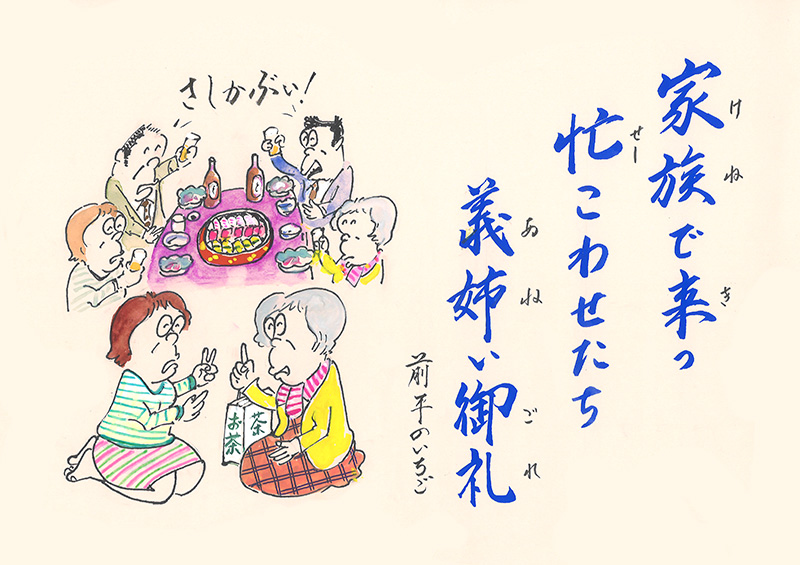 家族で来つ
けねき
忙こわせたち
せー
義姉い御礼
あねごれ
前平のいちご
さしかぶい!
お茶
茶